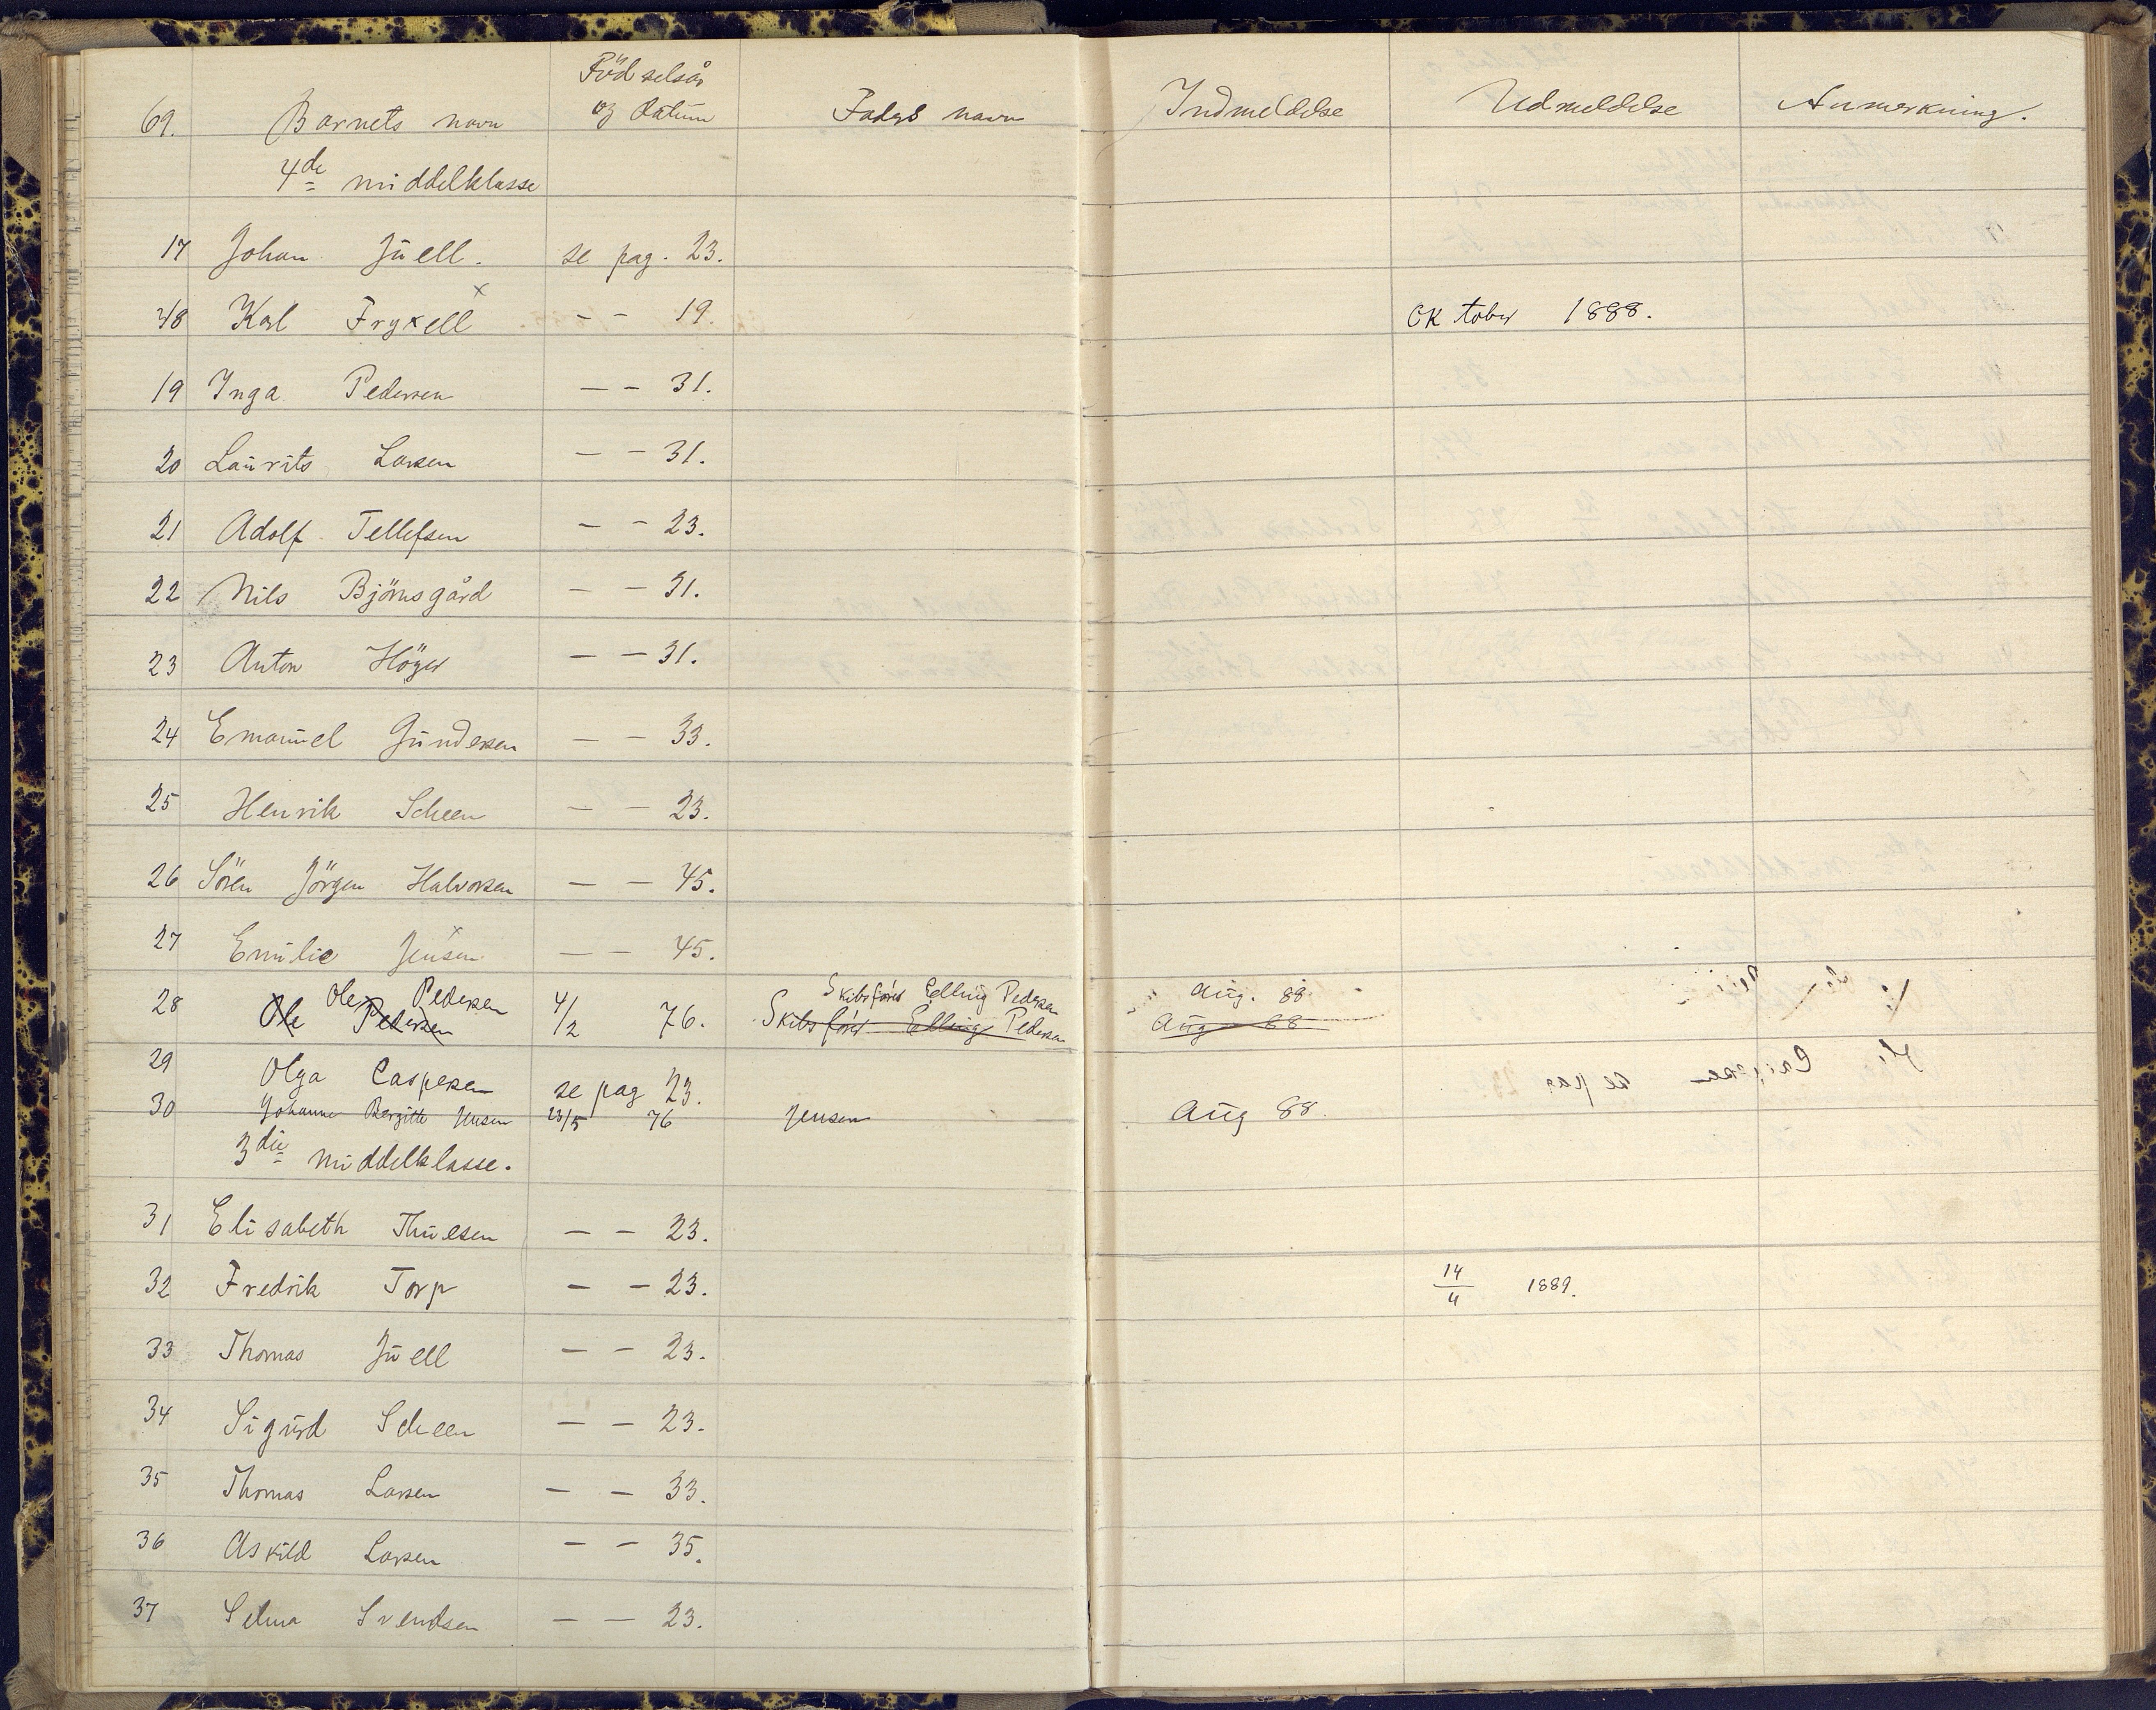 69. Barnets navn Födselsår og datum Faders navn Indmeldelse Udmeldelse Anmerkning.
4de middelklasse
17 Johan Juell. se pag. 23.
18 Karl Fryxell x - - 19. Oktober 1888.
19 Inga Pedersen - - 31.
20 Laurits Larsen - - 31.
21 Adolf Tellefsen - - 23.
22 Nils Björnsgård - - 31.
23 Anton Höyer - - 31.
24 Emanuel Gundersen - - 33.
25 Henrik Scheen - - 23.
26 Sören Jörgen Halvorsen - - 45.
27 Emilie Jensen x - - 45.
Ole Pedersen Skibsförer Elling Pedersen Aug. 88
28 Ole Pedersen 4/2 76. Skibsförer Elling Pedersen Aug 88
29 Olga Caspersen se pag 23.
30 Johanne Bergitte Jensen 23/5 76 Jensen Aug 88.
3die middelklasse.
31 Elisabeth Thuesen - - 23.
32 Fredrik Torp - - 23. 14/4 1889.
33 Thomas Juell - - 23.
34 Sigurd Scheen - - 23.
35 Thomas Larsen - - 33.
36 Askild Larsen - - 35.
37 Selma Svendsen - - 23.